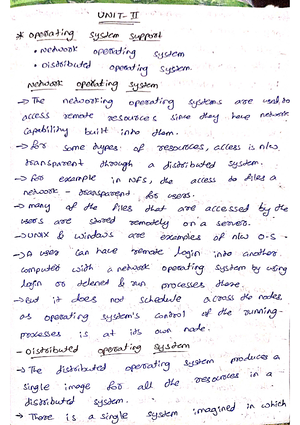 UNIT-II
* operating system support
• Network operating system
• Distributed operating system.
Network operating system
→ The networking operating systems are used to
access remote resources since they have network
capability built into them.
→ for some types of resources, access is n/w
transparent through a distributed system.
→ for example in NFS, the access to files a
network - transparent for users.
→ many of the files that are accessed by the
users are stored remotely on a server.
→ UNIX & windows are examples of n/w O.S.
→ A user can have remote login into another
computer with a network operating system by using
login or telenet & run processes there.
→ But it does not schedule across the nodes
as operating system's control of the running-
processes is at its own node.
- Distributed operating system
→ The distributed operating system produces a
single image for all the resources in a
distributed system.
→ There is a single system imagined in which